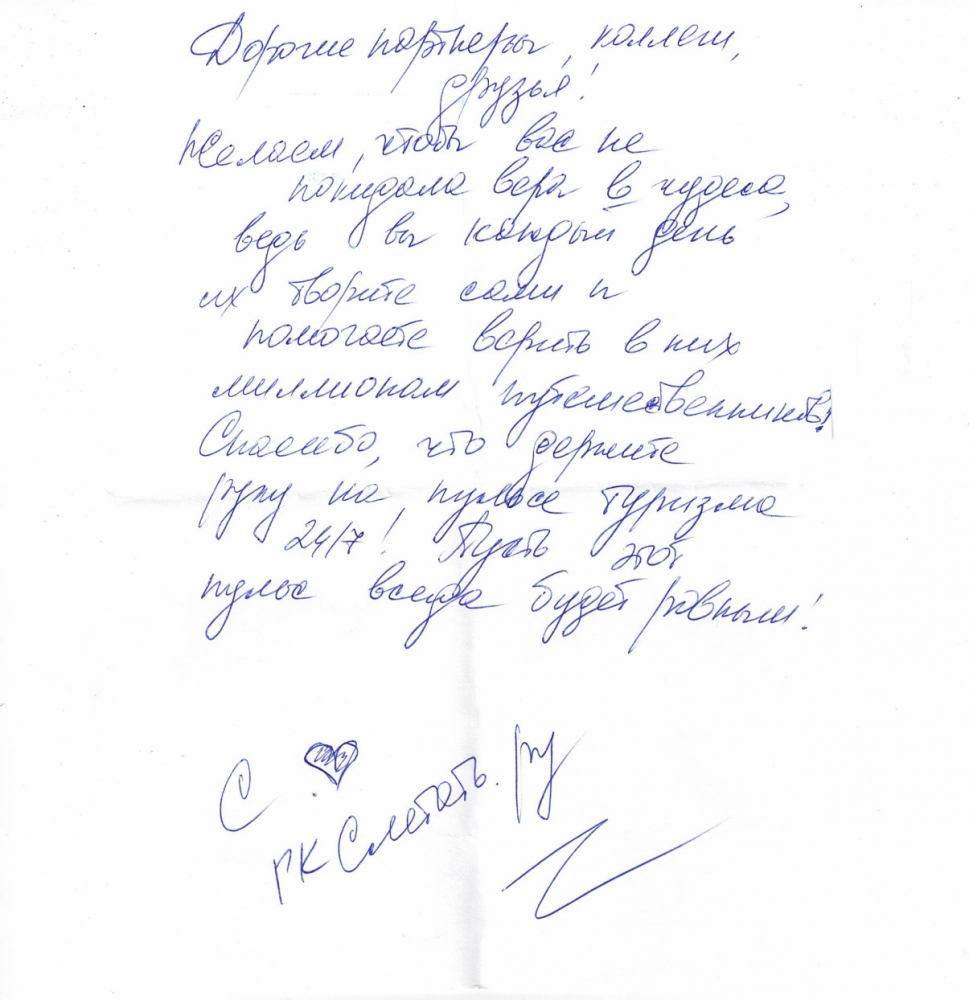 Дорогие партнеры, коллеги,
друзья!
Желаем, чтобы вас не
покидала вера в чудеса,
ведь вы каждый день
их творите сами и
помогаете верить в них
миллионам путешественников!
Спасибо, что держите
руку на пульсе туризма
24/7! Пусть этот
пульс всегда будет ровным!
С ♥
ГК Слетать.ру